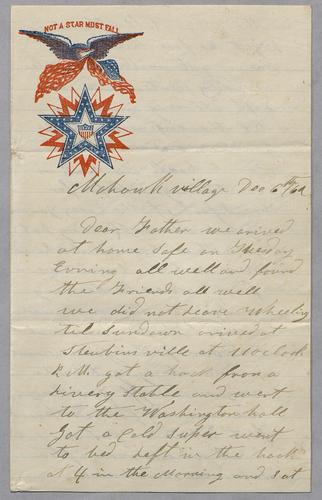 NOT A STAR MUST FALL
Mohawk village Dec 6th/62
Dear Father we arived
at home Safe on Tuesday
Evning all well and found
the Friends all well
we did not Leave Wheeling
til Sundown arived at
Steubinsville at 11 oclock
P.M. got a hack from a
Livery Stable and went
to the Washington hall
Got a Cold Super went
to bed Left in the hack
at 4 in the Morning and Sat